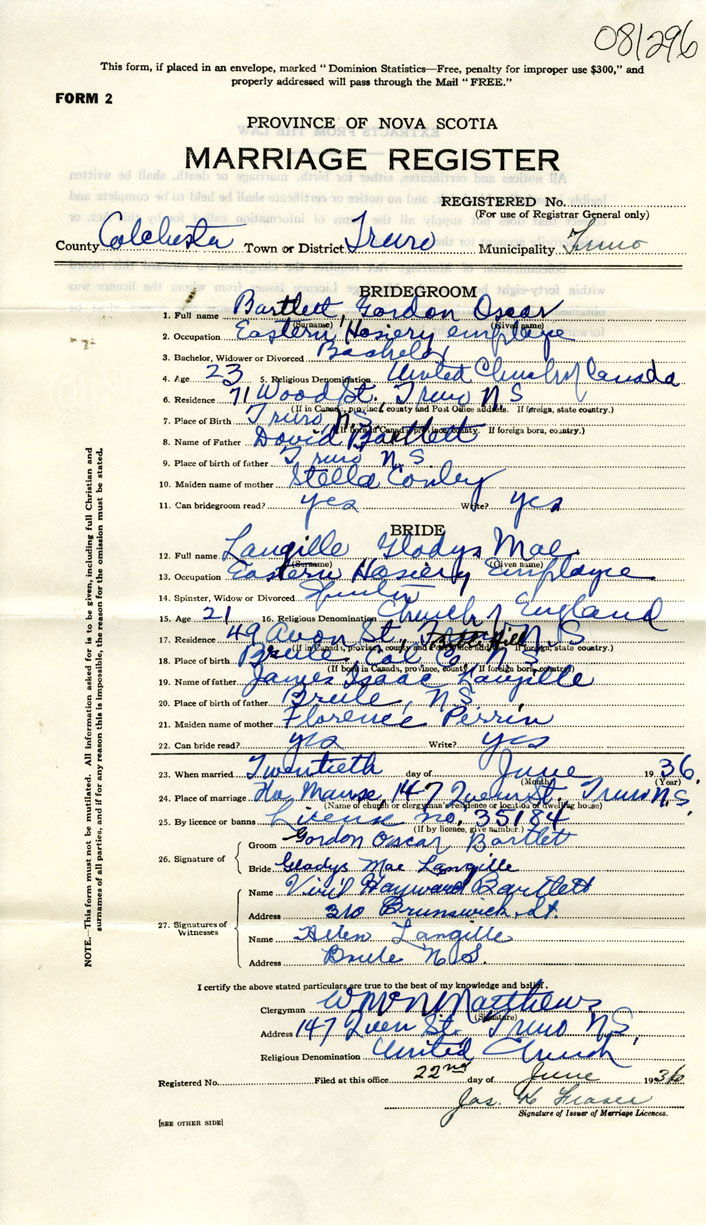 081296
This form, if placed in an envelope, marked "Dominion Statistics—Free, penalty for improper use $300," and
properly addressed will pass through the Mail "FREE."
FORM 2
PROVINCE OF NOVA SCOTIA
MARRIAGE REGISTER
REGISTERED No.
(For use of Registrar General only)
County Colchester Town or District Truro Municipality Truro
BRIDEGROOM
1. Full name Bartlett, Gordon Oscar
(Surname) (Given name)
2. Occupation Eastern Hosiery employe
3. Bachelor, Widower or Divorced Bachelor
4. Age 23 5. Religious Denomination United Church of Canada
6. Residence 71 Wood St. Truro N S
(If in Canada, province, county and Post Office address. If foreign, state country.)
7. Place of Birth Truro N.S.
(If born in Canada, province, county. If foreign born, country.)
8. Name of Father David Bartlett
9. Place of birth of father Truro N.S
10. Maiden name of mother Stella Conley
11. Can bridegroom read? yes Write? yes
BRIDE
12. Full name Langille Gladys Mae
(Surname) (Given name)
13. Occupation Eastern Hosiery Employee
14. Spinster, Widow or Divorced Spinster
15. Age 21 16. Religious Denomination Church of England
17. Residence 49 Avon St, N.S
(If in Canada, province, county and Post Office address. If foreign, state country.)
18. Place of birth Brule, Col Co N S
(If born in Canada, province, county. If foreign born, country)
19. Name of father James Isaac Langille
20. Place of birth of father Brule, N.S.
21. Maiden name of mother Florence Perrin
22. Can bride read? yes Write? yes
23. When married Twentieth day of June 1936.
(Month) (Year)
24. Place of marriage The Manse, 147 Queen St. Truro N.S.
(Name of church or clergyman's residence or location of dwelling house)
25. By licence or banns License no, 35184
(If by licence, give number.)
26. Signature of
Groom Gordon Oscar Bartlett
Bride Gladys Mae Langille
27. Signatures of Witnesses
Name Hayward Bartlett
Address 210 Brunswick St.
Name Allen Langille
Address Brule N.S.
NOTE.—This form must not be mutilated. All information asked for is to be given, including full Christian and
surnames of all parties, and if for any reason this is impossible, the reason for the omission must be stated.
I certify the above stated particulars are true to the best of my knowledge and belief.
Clergyman Matthews
(Signature)
Address 147 Queen St. Truro N.S,
Religious Denomination United Church
Registered No. Filed at this office 22nd day of June 1936
Jas. K Fraser
Signature of Issuer of Marriage Licences.
[SEE OTHER SIDE]